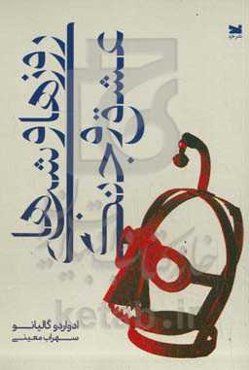 روزها و شب‌های
عشق و جنگ
ادواردو گالیانو
سهراب معینی
ketab.ir